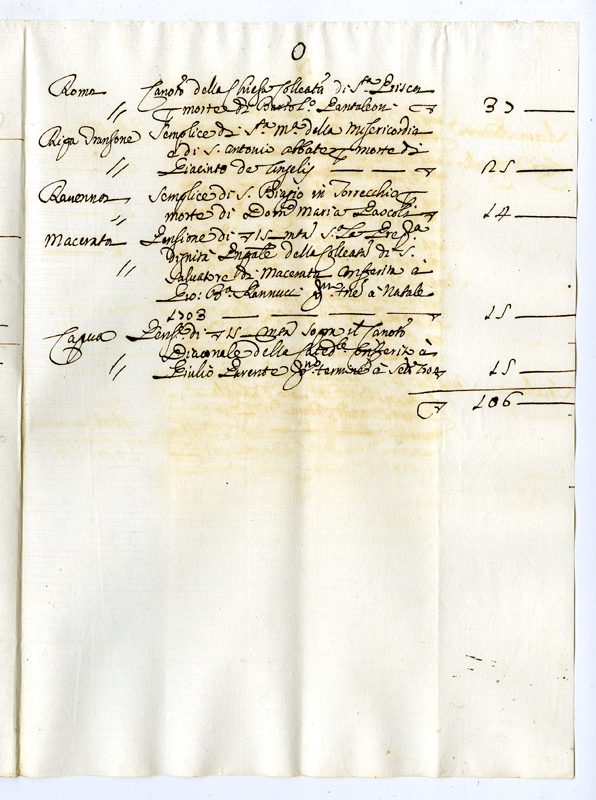 O
Roma Canoto della Chiesa Colleata di Sta Prisca
" p morte di Bartolo Pantaleon ▽ 37
Ripa Transone Semplice di Sta Ma della Misericordia
e di S. Antonio abbate p morte di
" Giacinto de Angelis — — — ▽ 25
Ravenna Semplice di S. Biagio in Torrecchio p
" morte di Domco Maria Paocoli ▽ 14
Macerata Pensione di ▽ 15 mta sa La
Dignità della Colleata di S.
" Salvatore di Macerata Conferita à
Gio: Ba Rannucci pmo tne à Natale
1703 — — — — — ▽ 15
Capua Pensne di ▽ 15 mta sopra il Canoto
Diaconale della Catedle Conferito à
" Giulio Parente pmo termine à Setr 1704 15
▽ 106